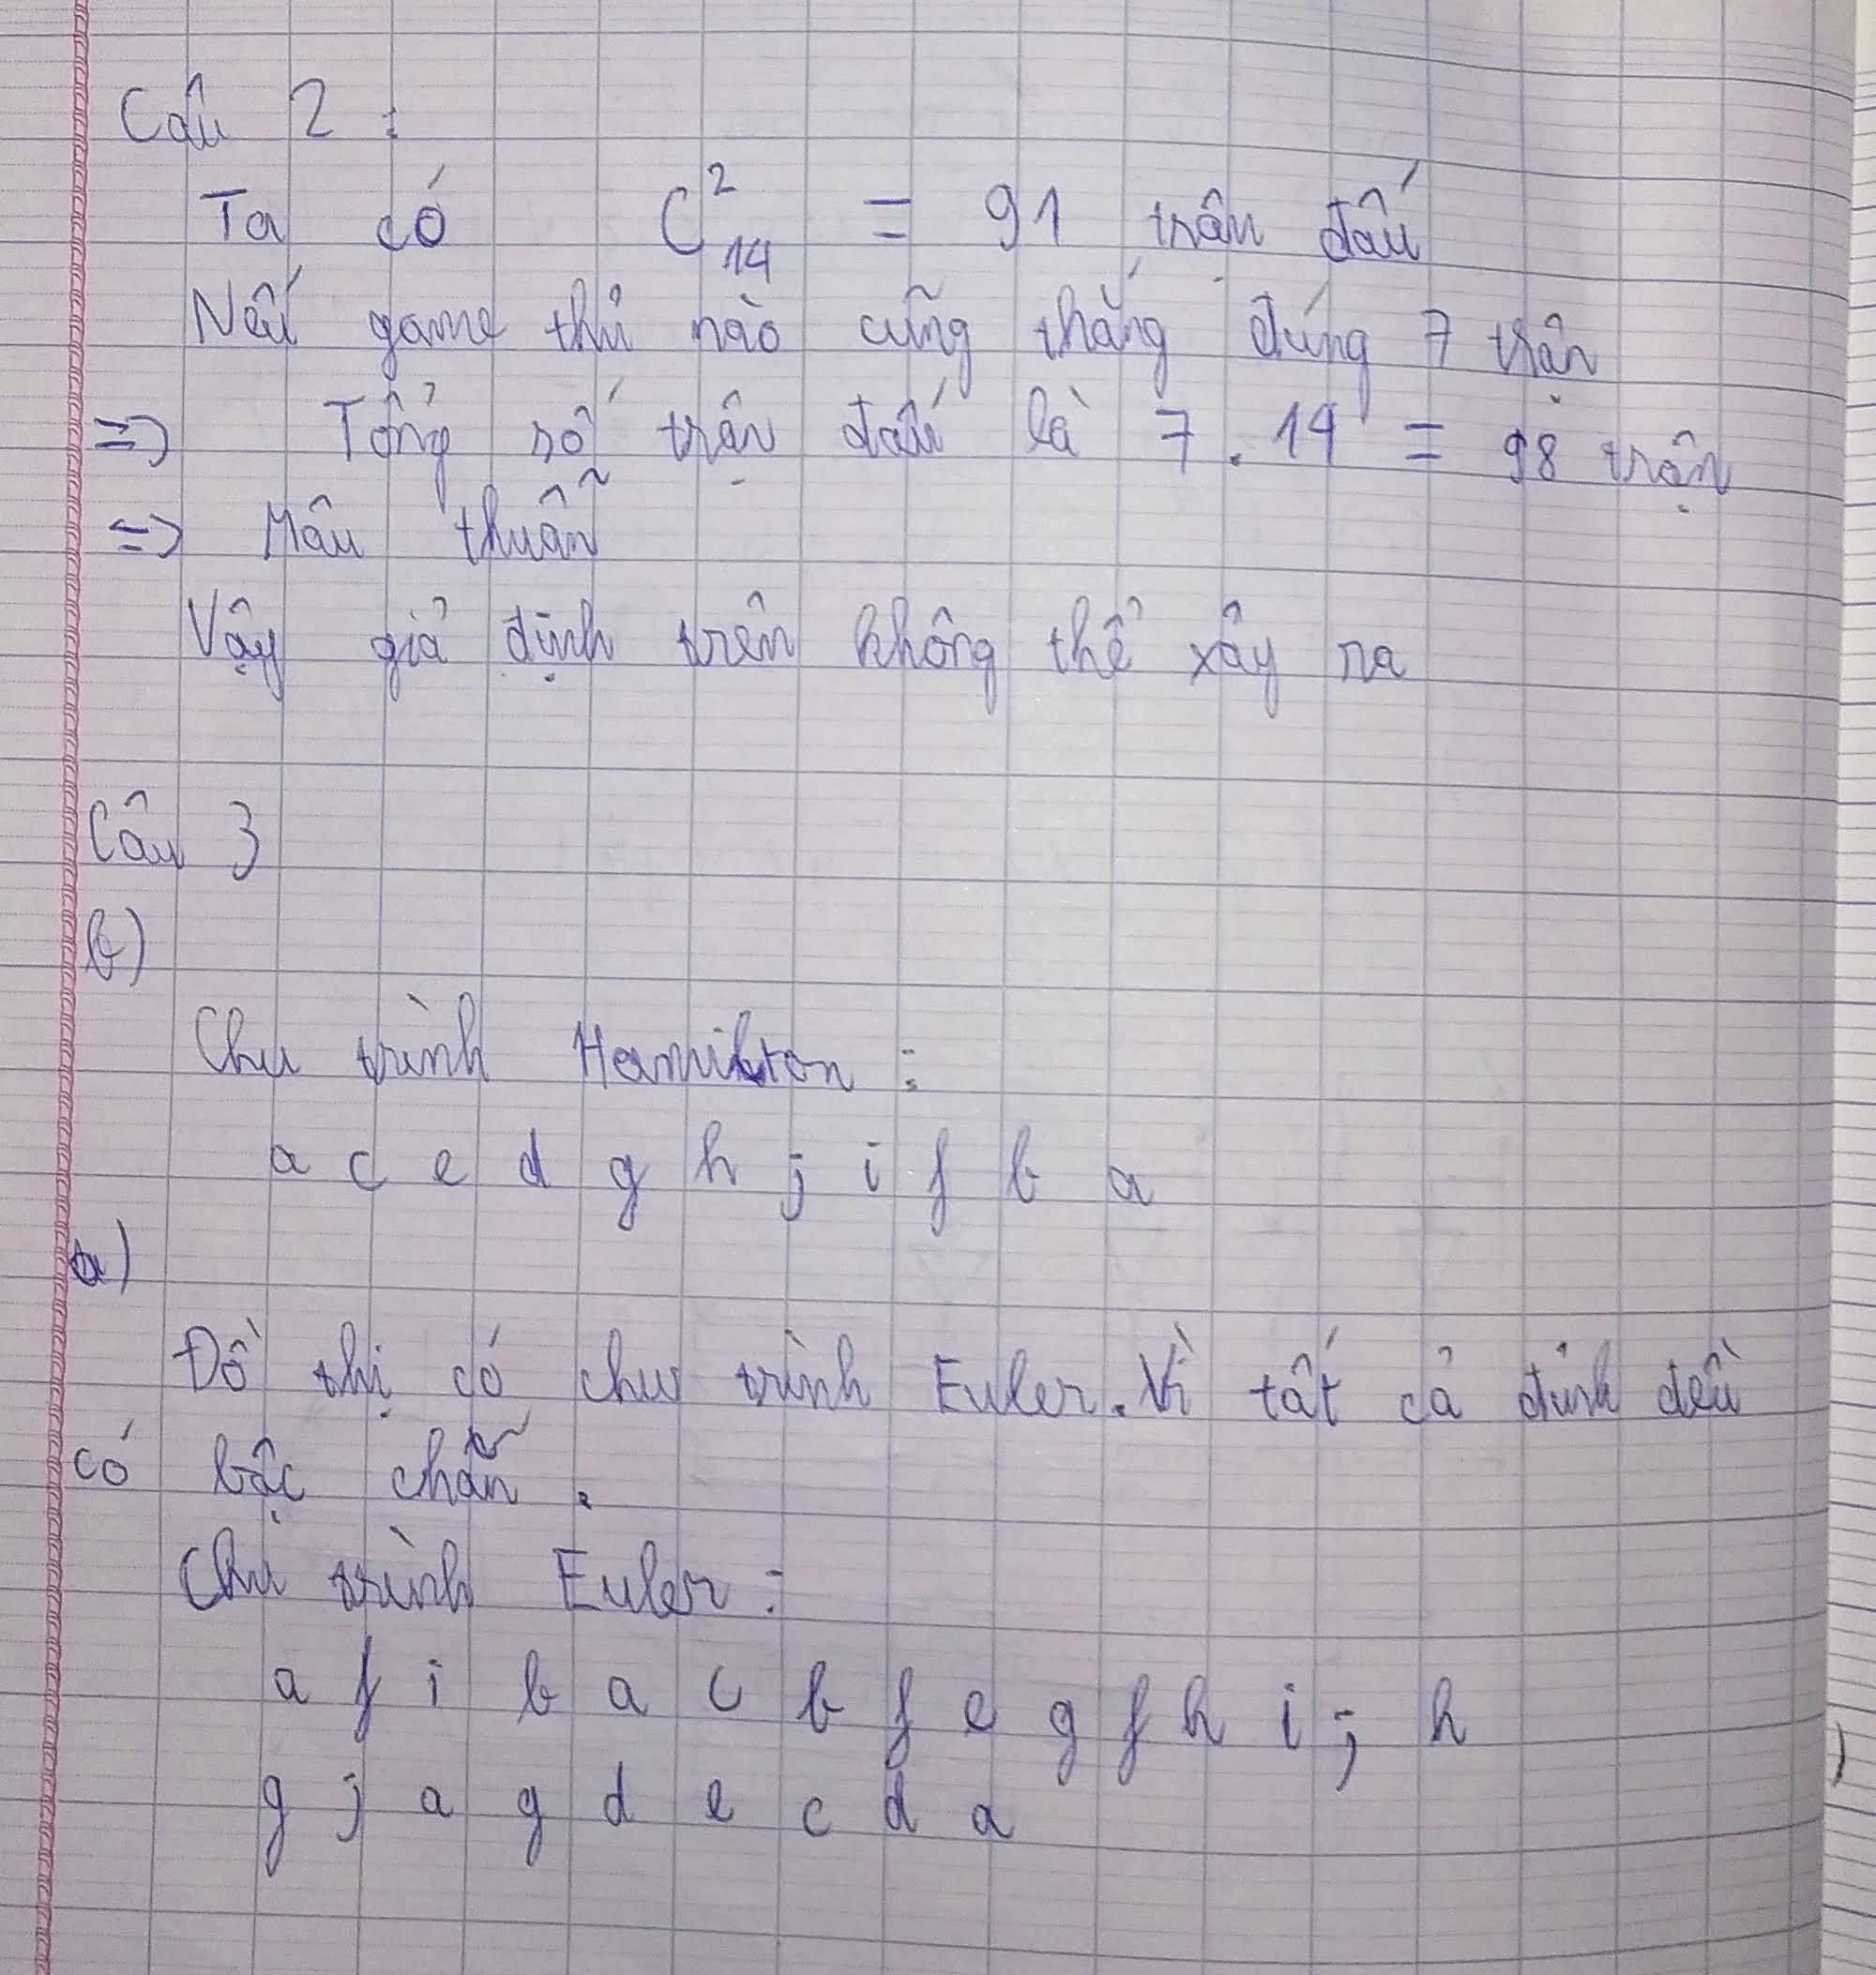 Câu 2 :
Ta có C²₁₄ = 91 trân đấu
Nếu game thủ nào cũng thắng đúng 7 trận
=> Tổng số trận đấu là 7 . 14 = 98 trận
=> Mâu thuẫn
Vậy giả định trên không thể xảy ra
Câu 3
b)
Chu trình Hamilton :
a c e d g h j i f b a
a)
Đồ thị có chu trình Euler. Vì tất cả đỉnh đều
có bậc chẵn .
Chu trình Euler :
a f i b a c b f e g f h i j h
g j a g d e c d a